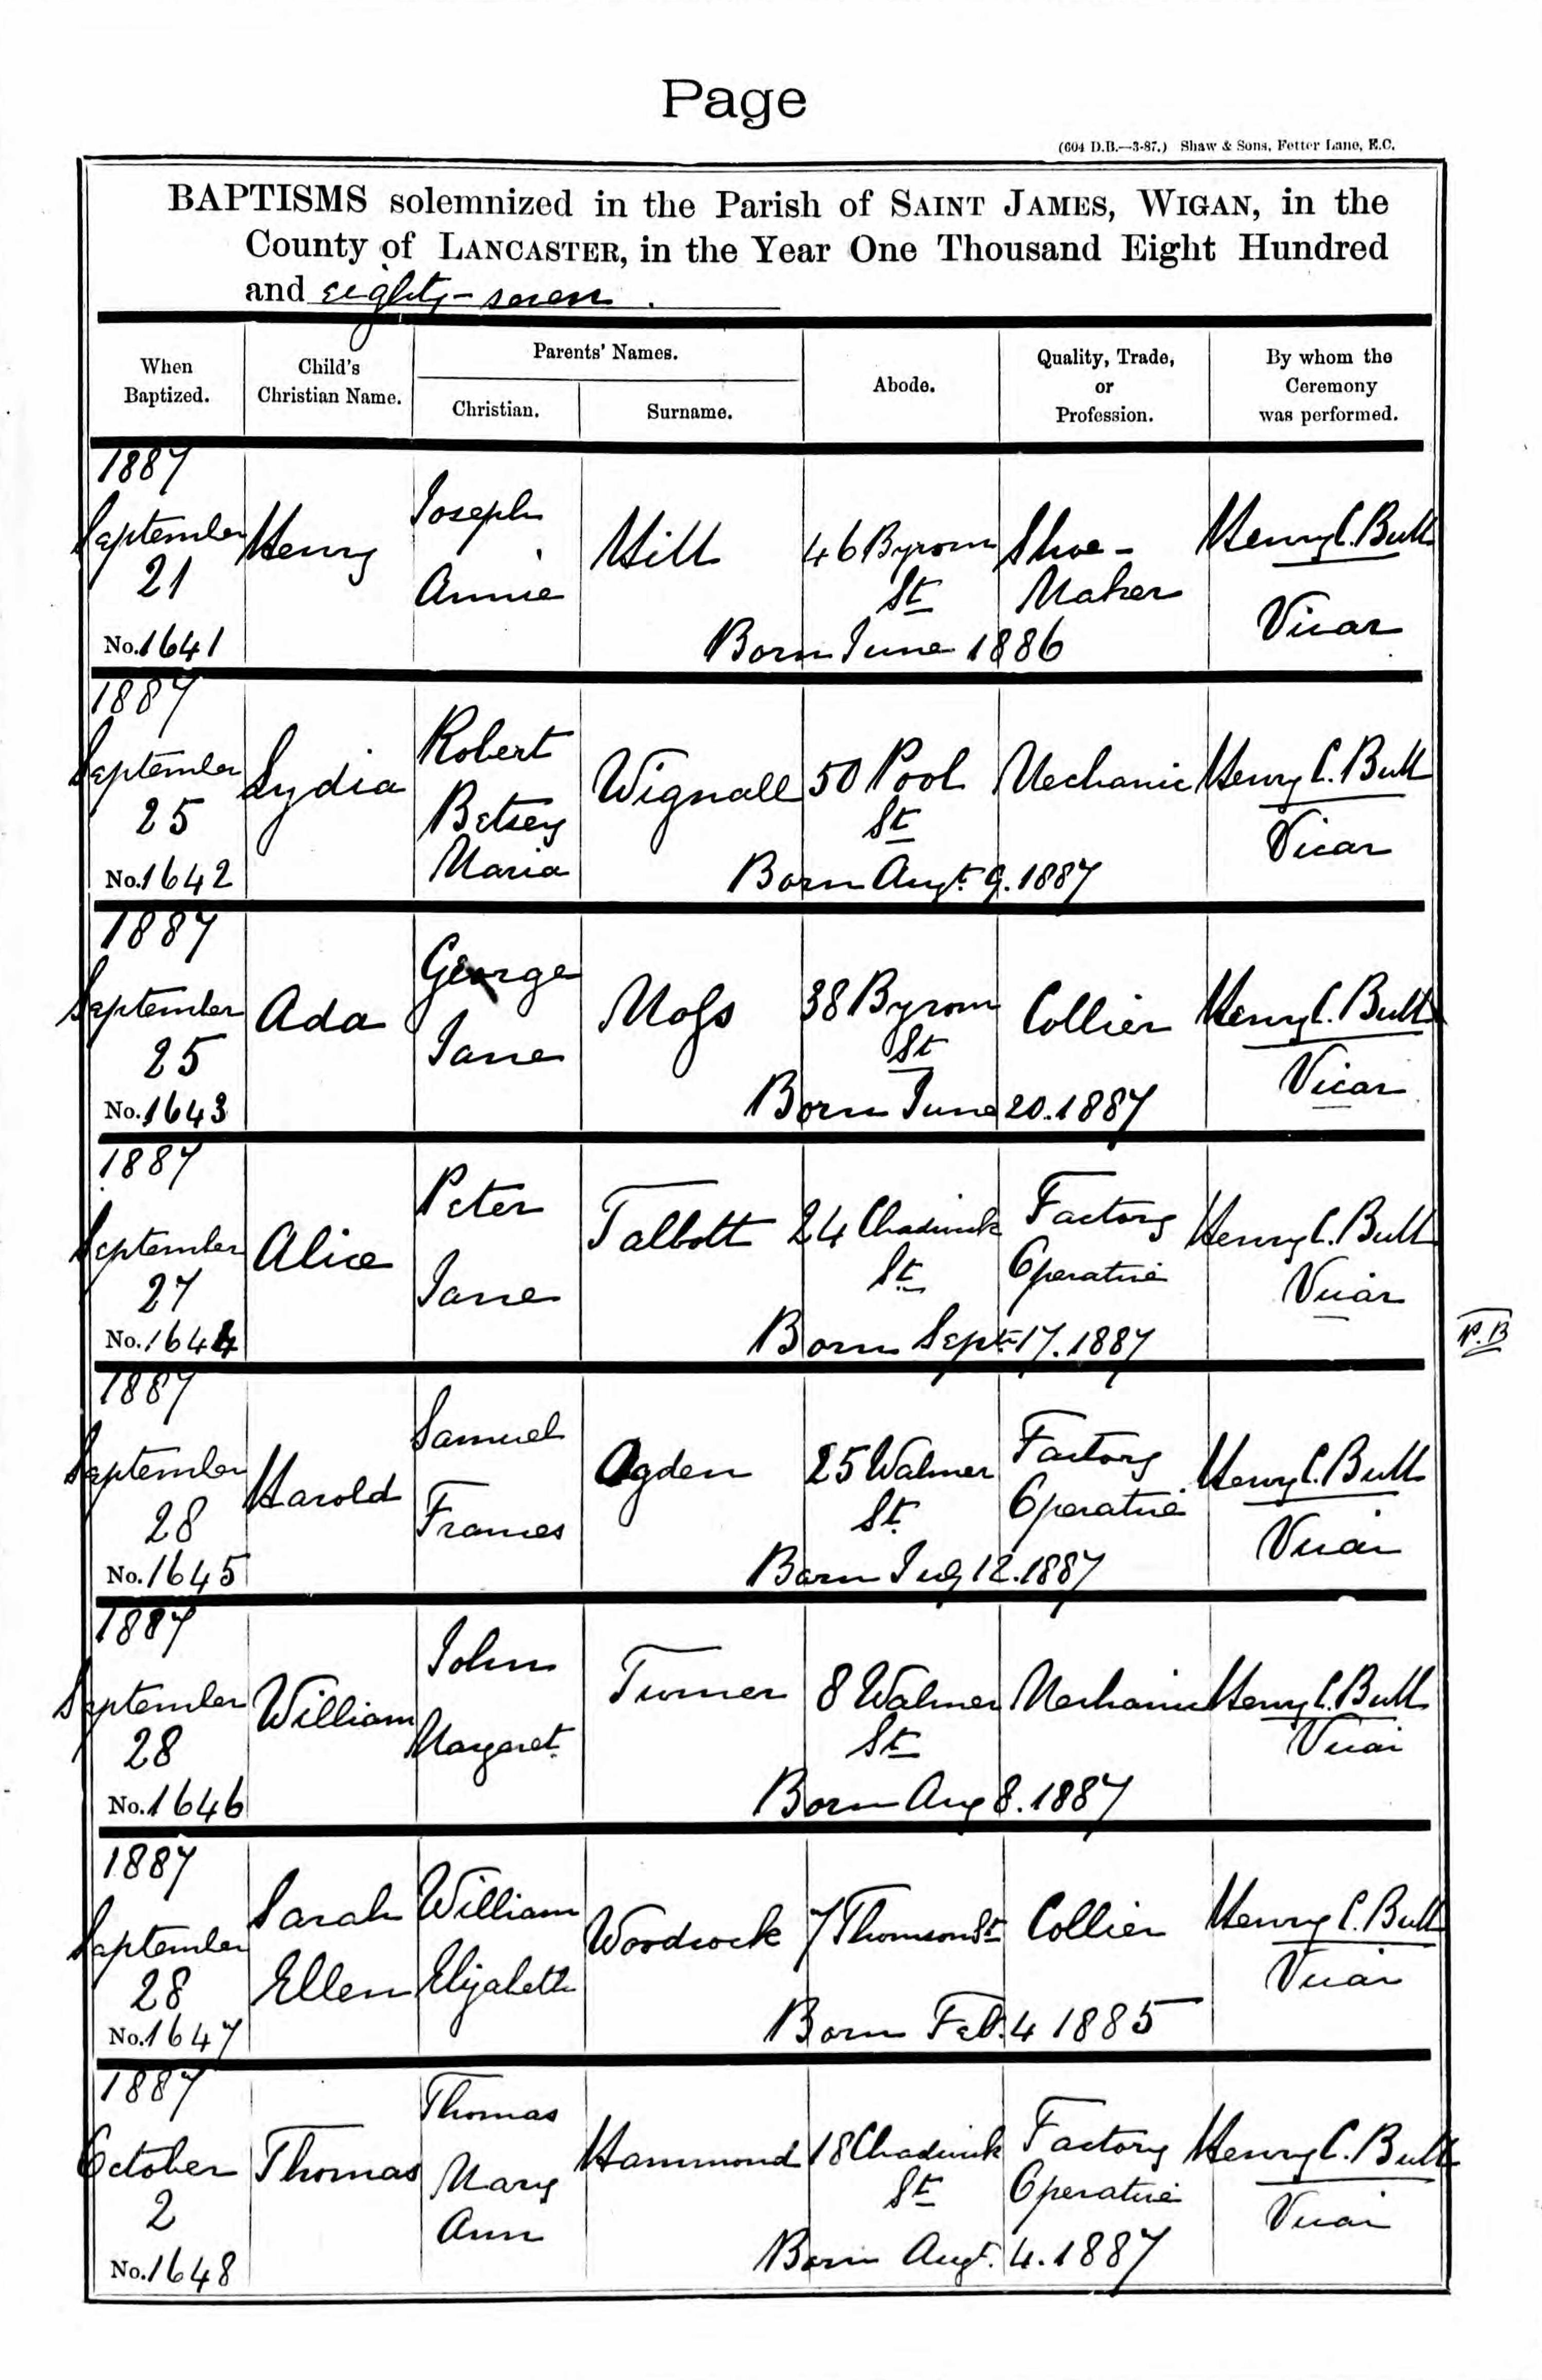 Page
(604 D.B.—3-87.) Shaw & Sons, Fetter Lane, E.C.
BAPTISMS solemnized in the Parish of SAINT JAMES, WIGAN, in the
County of LANCASTER, in the Year One Thousand Eight Hundred
and eighty-seven.
When Baptized. Child's Christian Name. Parents' Names. Christian. Surname. Abode. Quality, Trade, or Profession. By whom the Ceremony was performed.
1887
September 21 Henry Joseph Annie Hill 46 Byrom St Shoe-Maker Henry C. Butt Vicar
No. 1641 Born June 1886
1887
September 25 Lydia Robert Betsey Maria Wignall 50 Pool St Mechanic Henry C. Butt Vicar
No. 1642 Born Augt. 9. 1887
1887
September 25 Ada George Jane Moſs 38 Byrom St Collier Henry C. Butt Vicar
No. 1643 Born June 20. 1887
1887
September 27 Alice Peter Jane Talbott 24 Chadwick St. Factory Operative Henry C. Butt Vicar
No. 1644 Born Sept 17. 1887
P.B
1887
September 28 Harold Samuel Frances Ogden 25 Walmer St. Factory Operative Henry C. Butt Vicar
No. 1645 Born July 12. 1887
1887
September 28 William John Margaret Turner 8 Walmer St Mechanic Henry C. Butt Vicar
No. 1646 Born Aug 8. 1887
1887
September 28 Sarah Ellen William Elizabeth Woodcock 7 Thomson St Collier Henry C. Butt Vicar
No. 1647 Born Feb. 4 1885
1887
October 2 Thomas Thomas Mary Ann Hammond 18 Chadwick St Factory Operative Henry C. Butt Vicar
No. 1648 Born Augt. 4. 1887